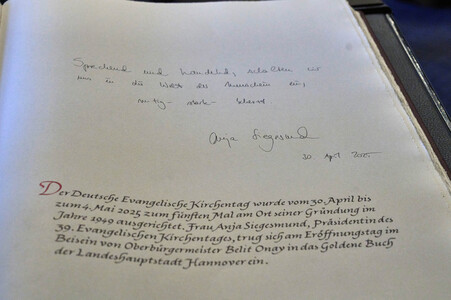 Sprechend und handelnd, schalten wir
uns in die Welt der Menschen ein,
mutig - stark - beherzt
Anja Siegesmund
30. April 2025
Der Deutsche Evangelische Kirchentag wurde vom 30. April bis
zum 4. Mai 2025 zum fünften Mal am Ort seiner Gründung im
Jahre 1949 ausgerichtet. Frau Anja Siegesmund, Präsidentin des
39. Evangelischen Kirchentages, trug sich am Eröffnungstag im
Beisein von Oberbürgermeister Belit Onay in das Goldene Buch
der Landeshauptstadt Hannover ein.